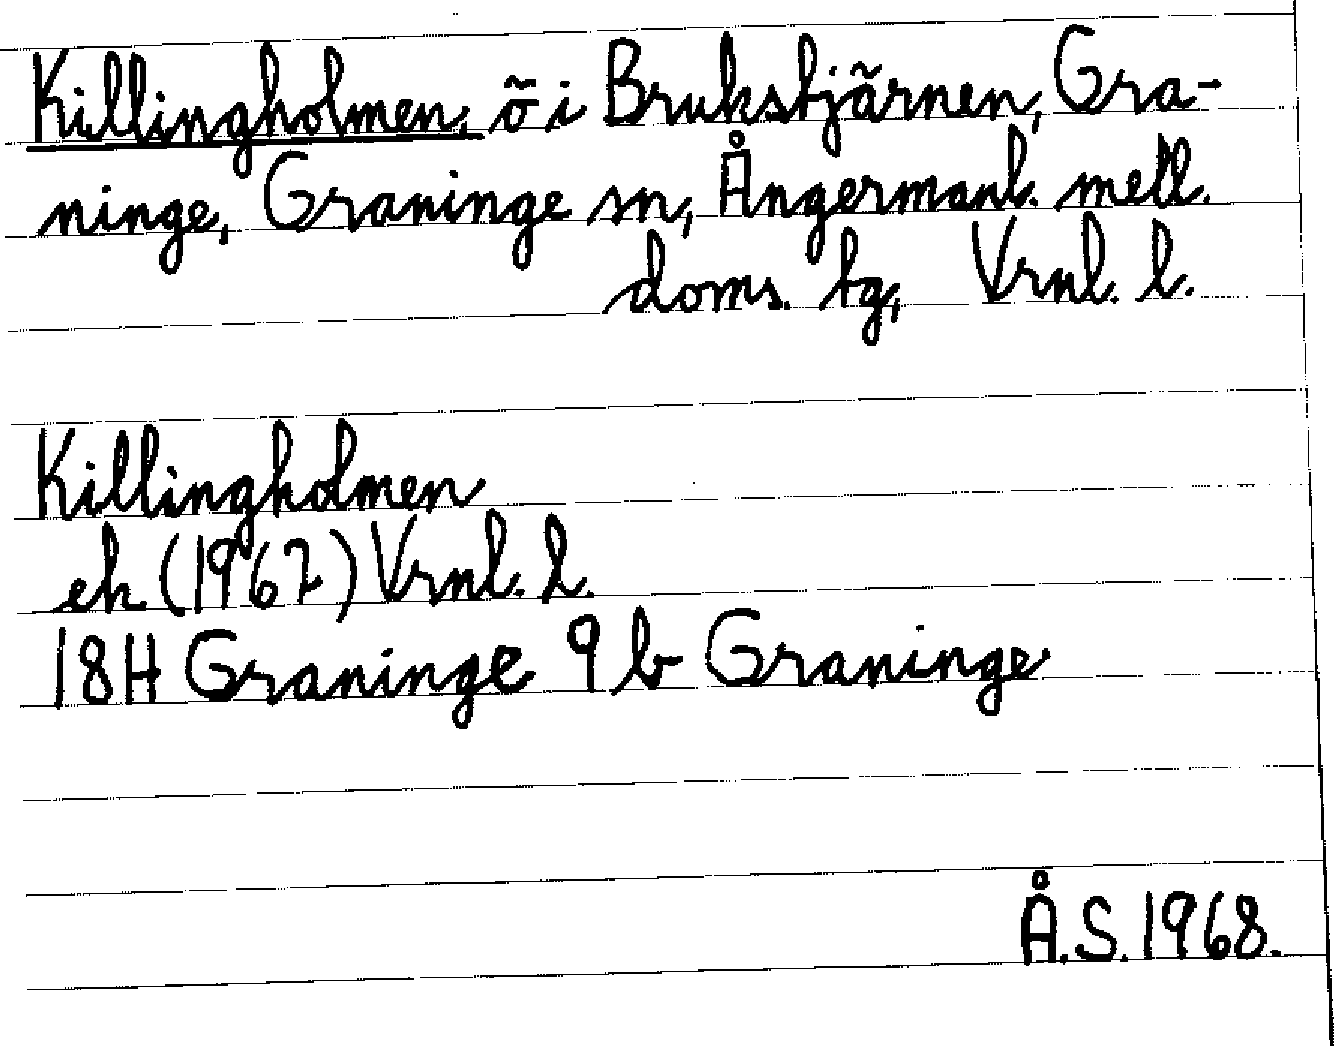 Killingholmen, ö i Brukstjärnen, Gra-
ninge, Graninge sn, Ångermanl. mell.
doms. tg, Vrnl. l.
Killingholmen
ek (1967) Vrnl. l.
18H Graninge 9b Graninge
Å.S. 1968.